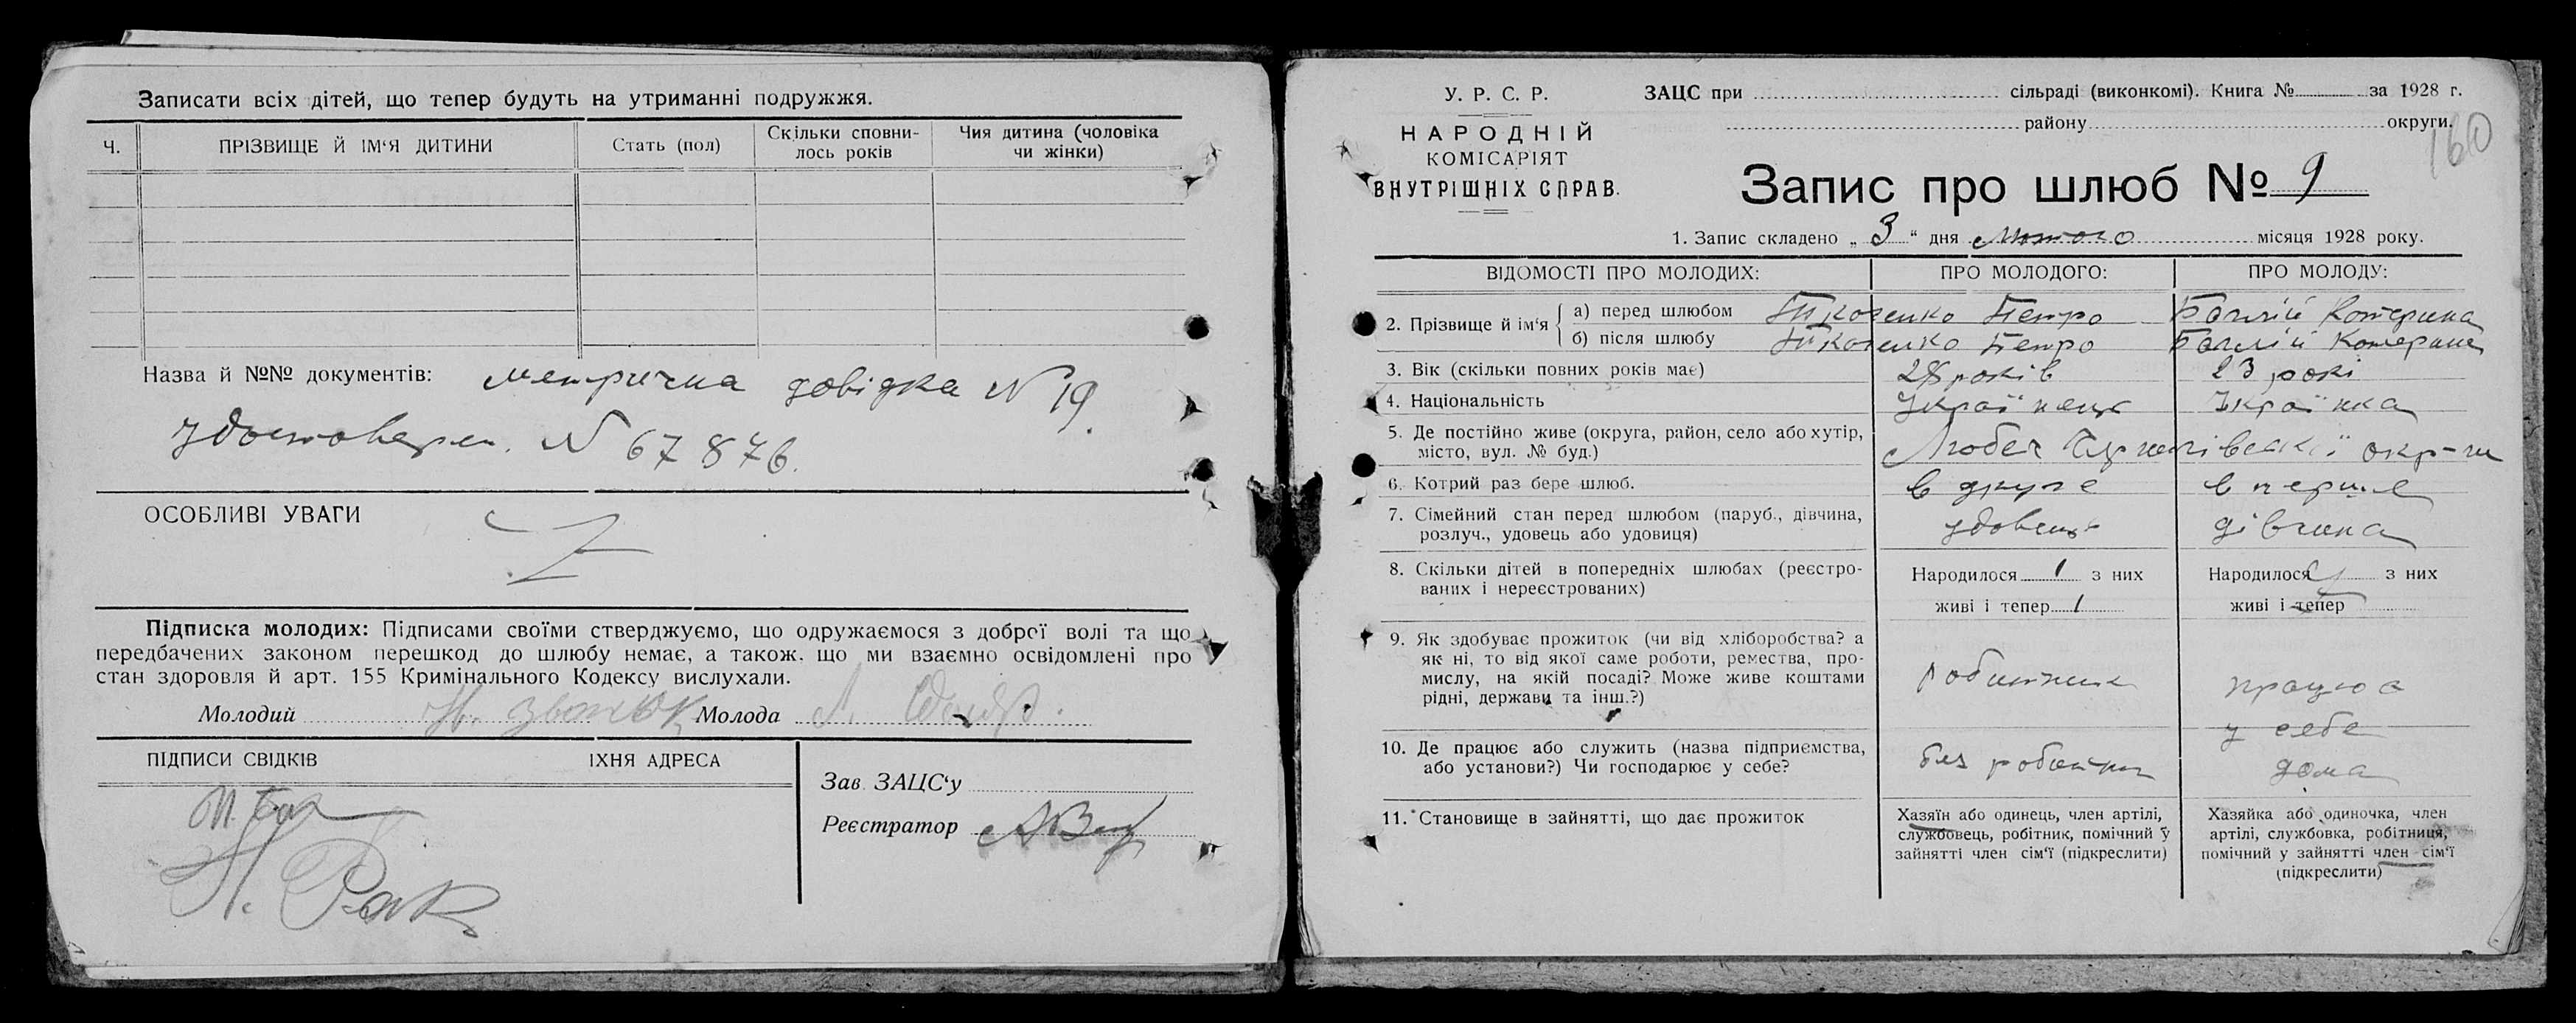 Записати всіх дітей, що тепер будуть на утриманні подружжя.
Ч.
ПРІЗВИЩЕ Й ІМ‘Я ДИТИНИ
Стать (пол)
Скільки сповни-
лось років
Чия дитина (чоловіка
чи жінки)
Назва й №№ документів: метрична довідка N 19.
N 67876.
ОСОБЛИВІ УВАГИ
Підписка молодих: Підписами своїми стверджуємо, що одружаємося з доброї волі та що
передбачених законом перешкод до шлюбу немає, а також. що ми взаємно освідомлені про
стан здоровля й арт. 155 Кримінального Кодексу вислухали.
Молодий
Молода
ПІДПИСИ СВІДКІВ
ЇХНЯ АДРЕСА
Зав. ЗАЦС‘у
Реєстратор
У. Р. С. Р.
НАРОДНІЙ
КОМІСАРІЯТ
ВНУТРІШНІХ СПРАВ.
ЗАЦС при сільраді (виконкомі). Книга № за 1928 г.
району округи.
160
Запис про шлюб № 9
1. Запис складено „3“ дня Лютого місяця 1928 року.
ВІДОМОСТІ ПРО МОЛОДИХ:
ПРО МОЛОДОГО:
ПРО МОЛОДУ:
2. Прізвище й ім‘я
а) перед шлюбом Петро Катерина
б) після шлюбу Петро Катерина
3. Вік (скільки повних років має) 28 років 23 рокі
4. Національність Українець Українка
5. Де постійно живе (округа, район, село або хутір,
місто, вул. № буд.)
Любеч Чернігівської окр-и
6. Котрий раз бере шлюб. в друге в перше
7. Сімейний стан перед шлюбом (паруб., дівчина,
розлуч., удовець або удовиця)
удовець дівчина
8. Скільки дітей в попередніх шлюбах (реєстро-
ваних і нереєстрованих)
Народилося 1 з них
живі і тепер 1
Народилося з них
живі і тепер
9. Як здобуває прожиток (чи від хліборобства? а
як ні, то від якої саме роботи, ремества, про-
мислу, на якій посаді? Може живе коштами
рідні, держави та інш.?)
робитник
працює
у себе
10. Де працює або служить (назва підприємства,
або установи?) Чи господарює у себе?
без работи
дома
11. Становище в зайнятті, що дає прожиток
Хазяїн або одинець, член артілі,
службовець, робітник, помічний у
зайнятті член сім‘ї (підкреслити)
Хазяйка або одиночка, член
артілі, службовка, робітниця,
помічний у зайнятті член сім‘ї
(підкреслити)